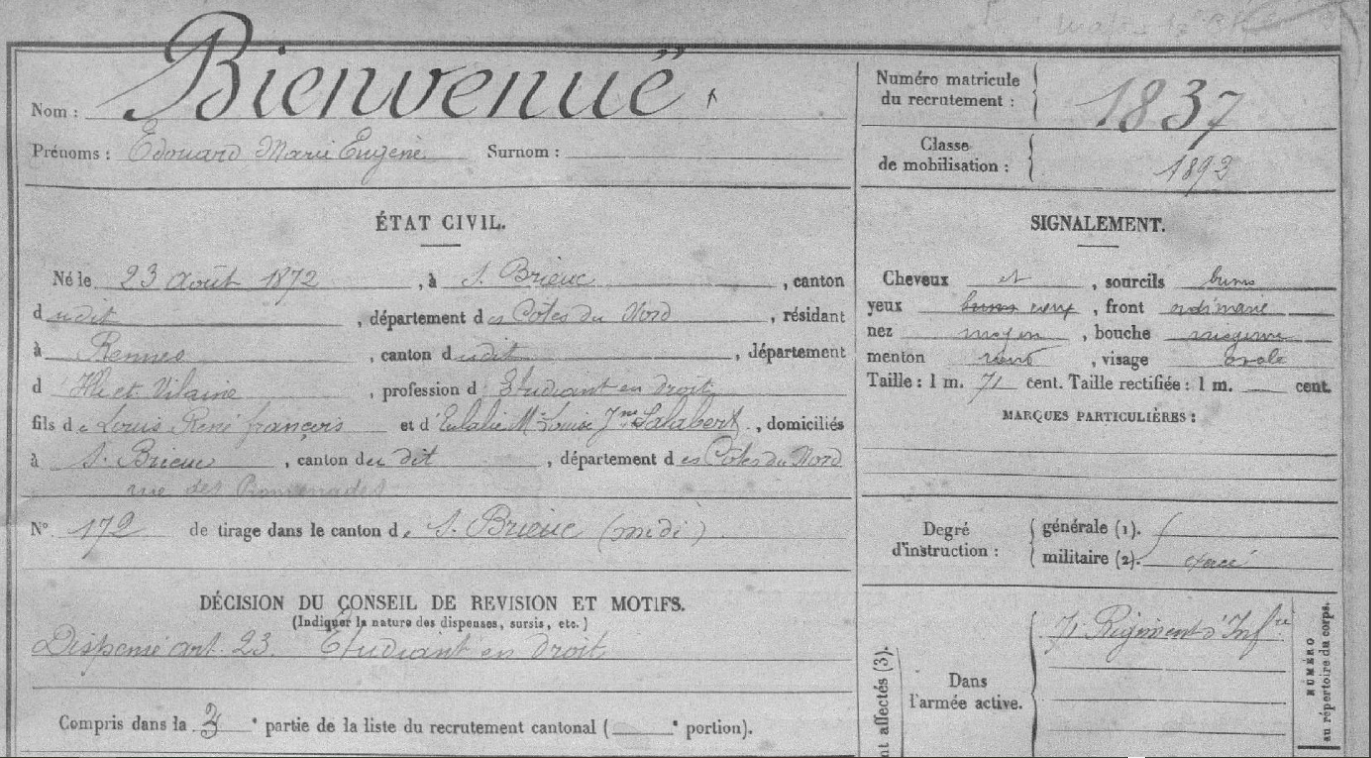 Nom : Bienvenuë
Prénoms : Edouard Marie Eugène Surnom :
Numéro matricule
du recrutement : 1837
Classe
de mobilisation : 1892
ÉTAT CIVIL.
Né le 23 Août 1872, à S. Brieuc, canton
dudit, département des Côtes du Nord, résidant
à Rennes, canton dudit, département
d'Ille et Vilaine, profession d'Etudiant en droit
fils de Louis René françois et d'Eulalie Mie Louise Jne Salabert, domiciliés
à S. Brieuc, canton du dit, département des Côtes du Nord
rue des Promenades
N° 172 de tirage dans le canton de S. Brieuc (midi)
DÉCISION DU CONSEIL DE REVISION ET MOTIFS.
(Indiquer la nature des dispenses, sursis, etc.)
Dispensé art. 23. Etudiant en droit
Compris dans la 3e partie de la liste du recrutement cantonal ( e portion).
SIGNALEMENT.
Cheveux et, sourcils bruns
yeux, front ordinaire
nez moyen, bouche moyenne
menton rond, visage ovale
Taille : 1 m. 71 cent. Taille rectifiée : 1 m. cent.
MARQUES PARTICULIÈRES :
Degré
d'instruction :
générale (1).
militaire (2). exercé
nt affectés (3).
Dans
l'armée active.
71 Régiment d'Infrie
NUMÉRO
au répertoire du corps.